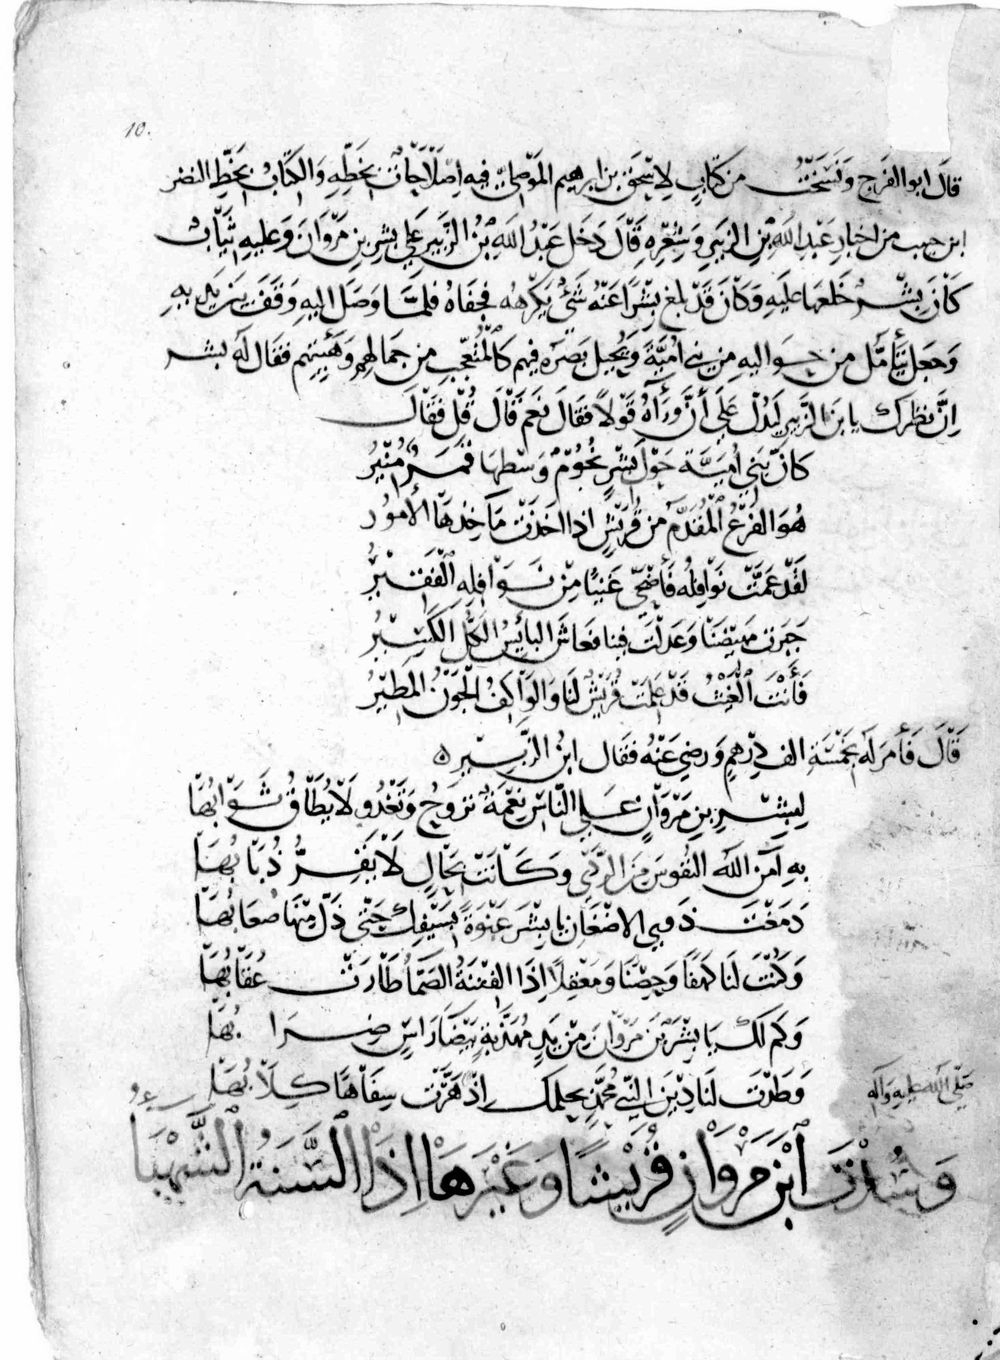 10.
قال ابو الفرج ونسخت من كتاب لاسحق بن ابرهيم الموصلي فيه اصلاحات بخطه والكتاب بخط النضر
ابن حديد من اخبار عبد الله بن الزبير وشعره قال دخل عبد الله بن الزبير على بشر بن مروان وعليه ثياب
كان بشر خلعها عليه وكان قد بلغ بشرا عنه شئ يكرهه فجفاه فلما وصل اليه وقف بين يديه
وجعل يتأمل من حواليه من بني امية ويجيل بصره فيهم كالمتعجب من جمالهم وهيئتهم فقال له بشر
ان نظرك يا بن الزبير ليدل على أن وراءه قولا فقال نعم قال قل فقال
كان بني امية حول بشر نجوم وسطها قمر منير
هو الفرع المقدم من قريش اذا اخذت مآخذها الأمور
لقد عمت نوافله فأضحى غنيا من نوافله الفقير
جبرت مهيضنا وعدلت فينا فعاش البائس الكل الكسير
فأنت الغيث قد علمت قريش لنا والواكف الجون المطير
قال فأمر له بخمسة الف درهم ورضي عنه فقال ابن الزبير ه
لبشر بن مروان على الناس نعمة تروح وتغدو لا يطاق ثوابها
به آمن الله النفوس من الردى وكانت بحال لا يفر ذبابها
دمغت ذوي الاضغان يا بشر عنوة بسيفك حتى ذل منها صعابها
وكنت لنا كهفا وحصنا ومعقلا اذا الفتنة الصماء طارت عقابها
وكم لك يا بشر بن مروان من يد مهذبة بيضاء راس ضرابها
وطدت لنا دين النبي محمد بحلمك اذ هرت سفاها كلابها
صلى الله عليه وآله
وسدت ابن مروان قريشا وغيرها اذا السنة الشهباء